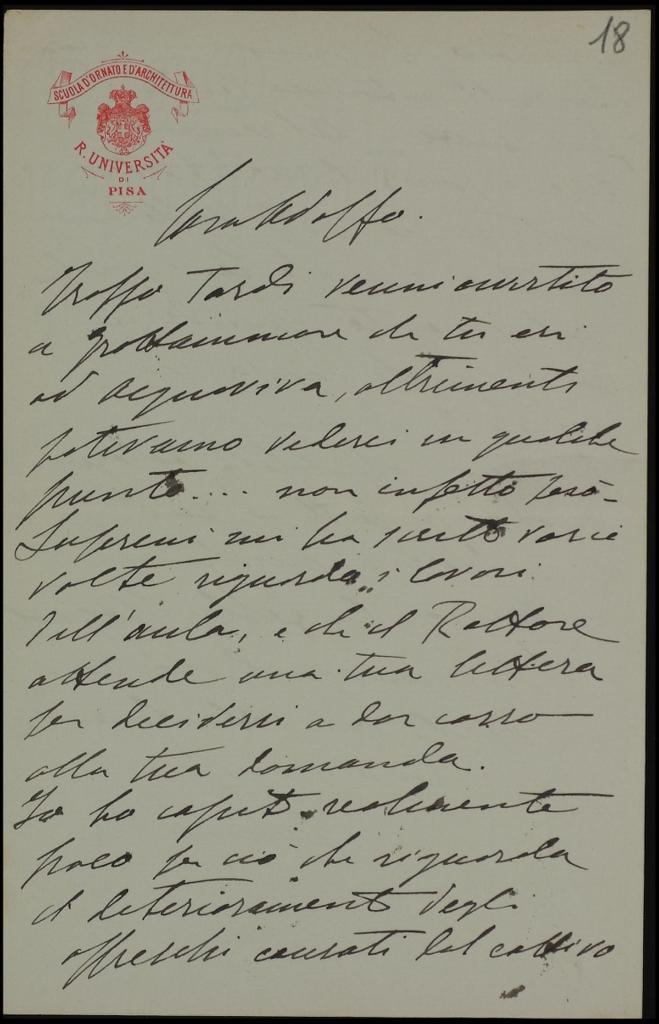 18
SCUOLA D'ORNATO E D'ARCHITETTURA
R. UNIVERSITÀ
DI
PISA
Caro Adolfo.
Troppo Tardi venni avvertito
a Grottammare che tu eri
ad Acquaviva, altrimenti
potevamo vederci in qualche
punto.... non infetto però-
Supereni mi ha scritto varie
volte riguardo i lavori
dell'aula, e che il Rettore
attende una tua lettera
per decidersi a dar corso
alla tua domanda.
Io ho capito realmente
poco per ciò che riguarda
il deterioramento degli
affreschi causati dal cattivo